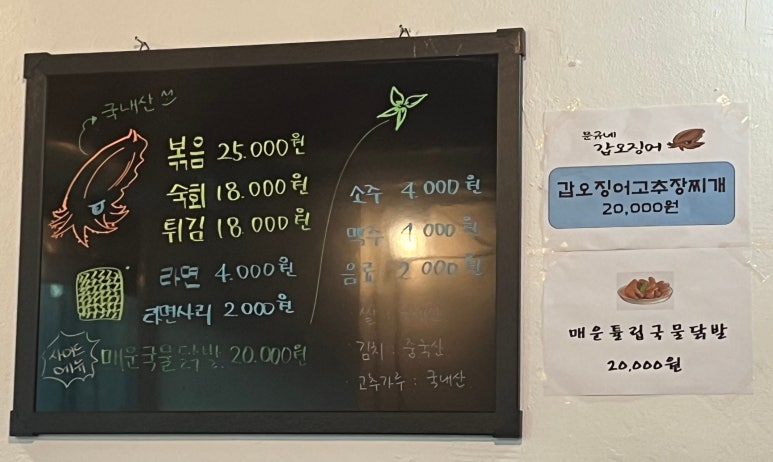 국내산
볶음 25.000원
숙회 18.000원
튀김 18.000원
라면 4.000원
라면사리 2000원
사이드
메뉴
매운국물닭발 20.000원
소주 4.000원
맥주 4.000원
음료 2000원
쌀 :
김치 : 중국산
고추가루 : 국내산
문규네
갑오징어
갑오징어고추장찌개
20,000원
매운튤립국물닭발
20,000원